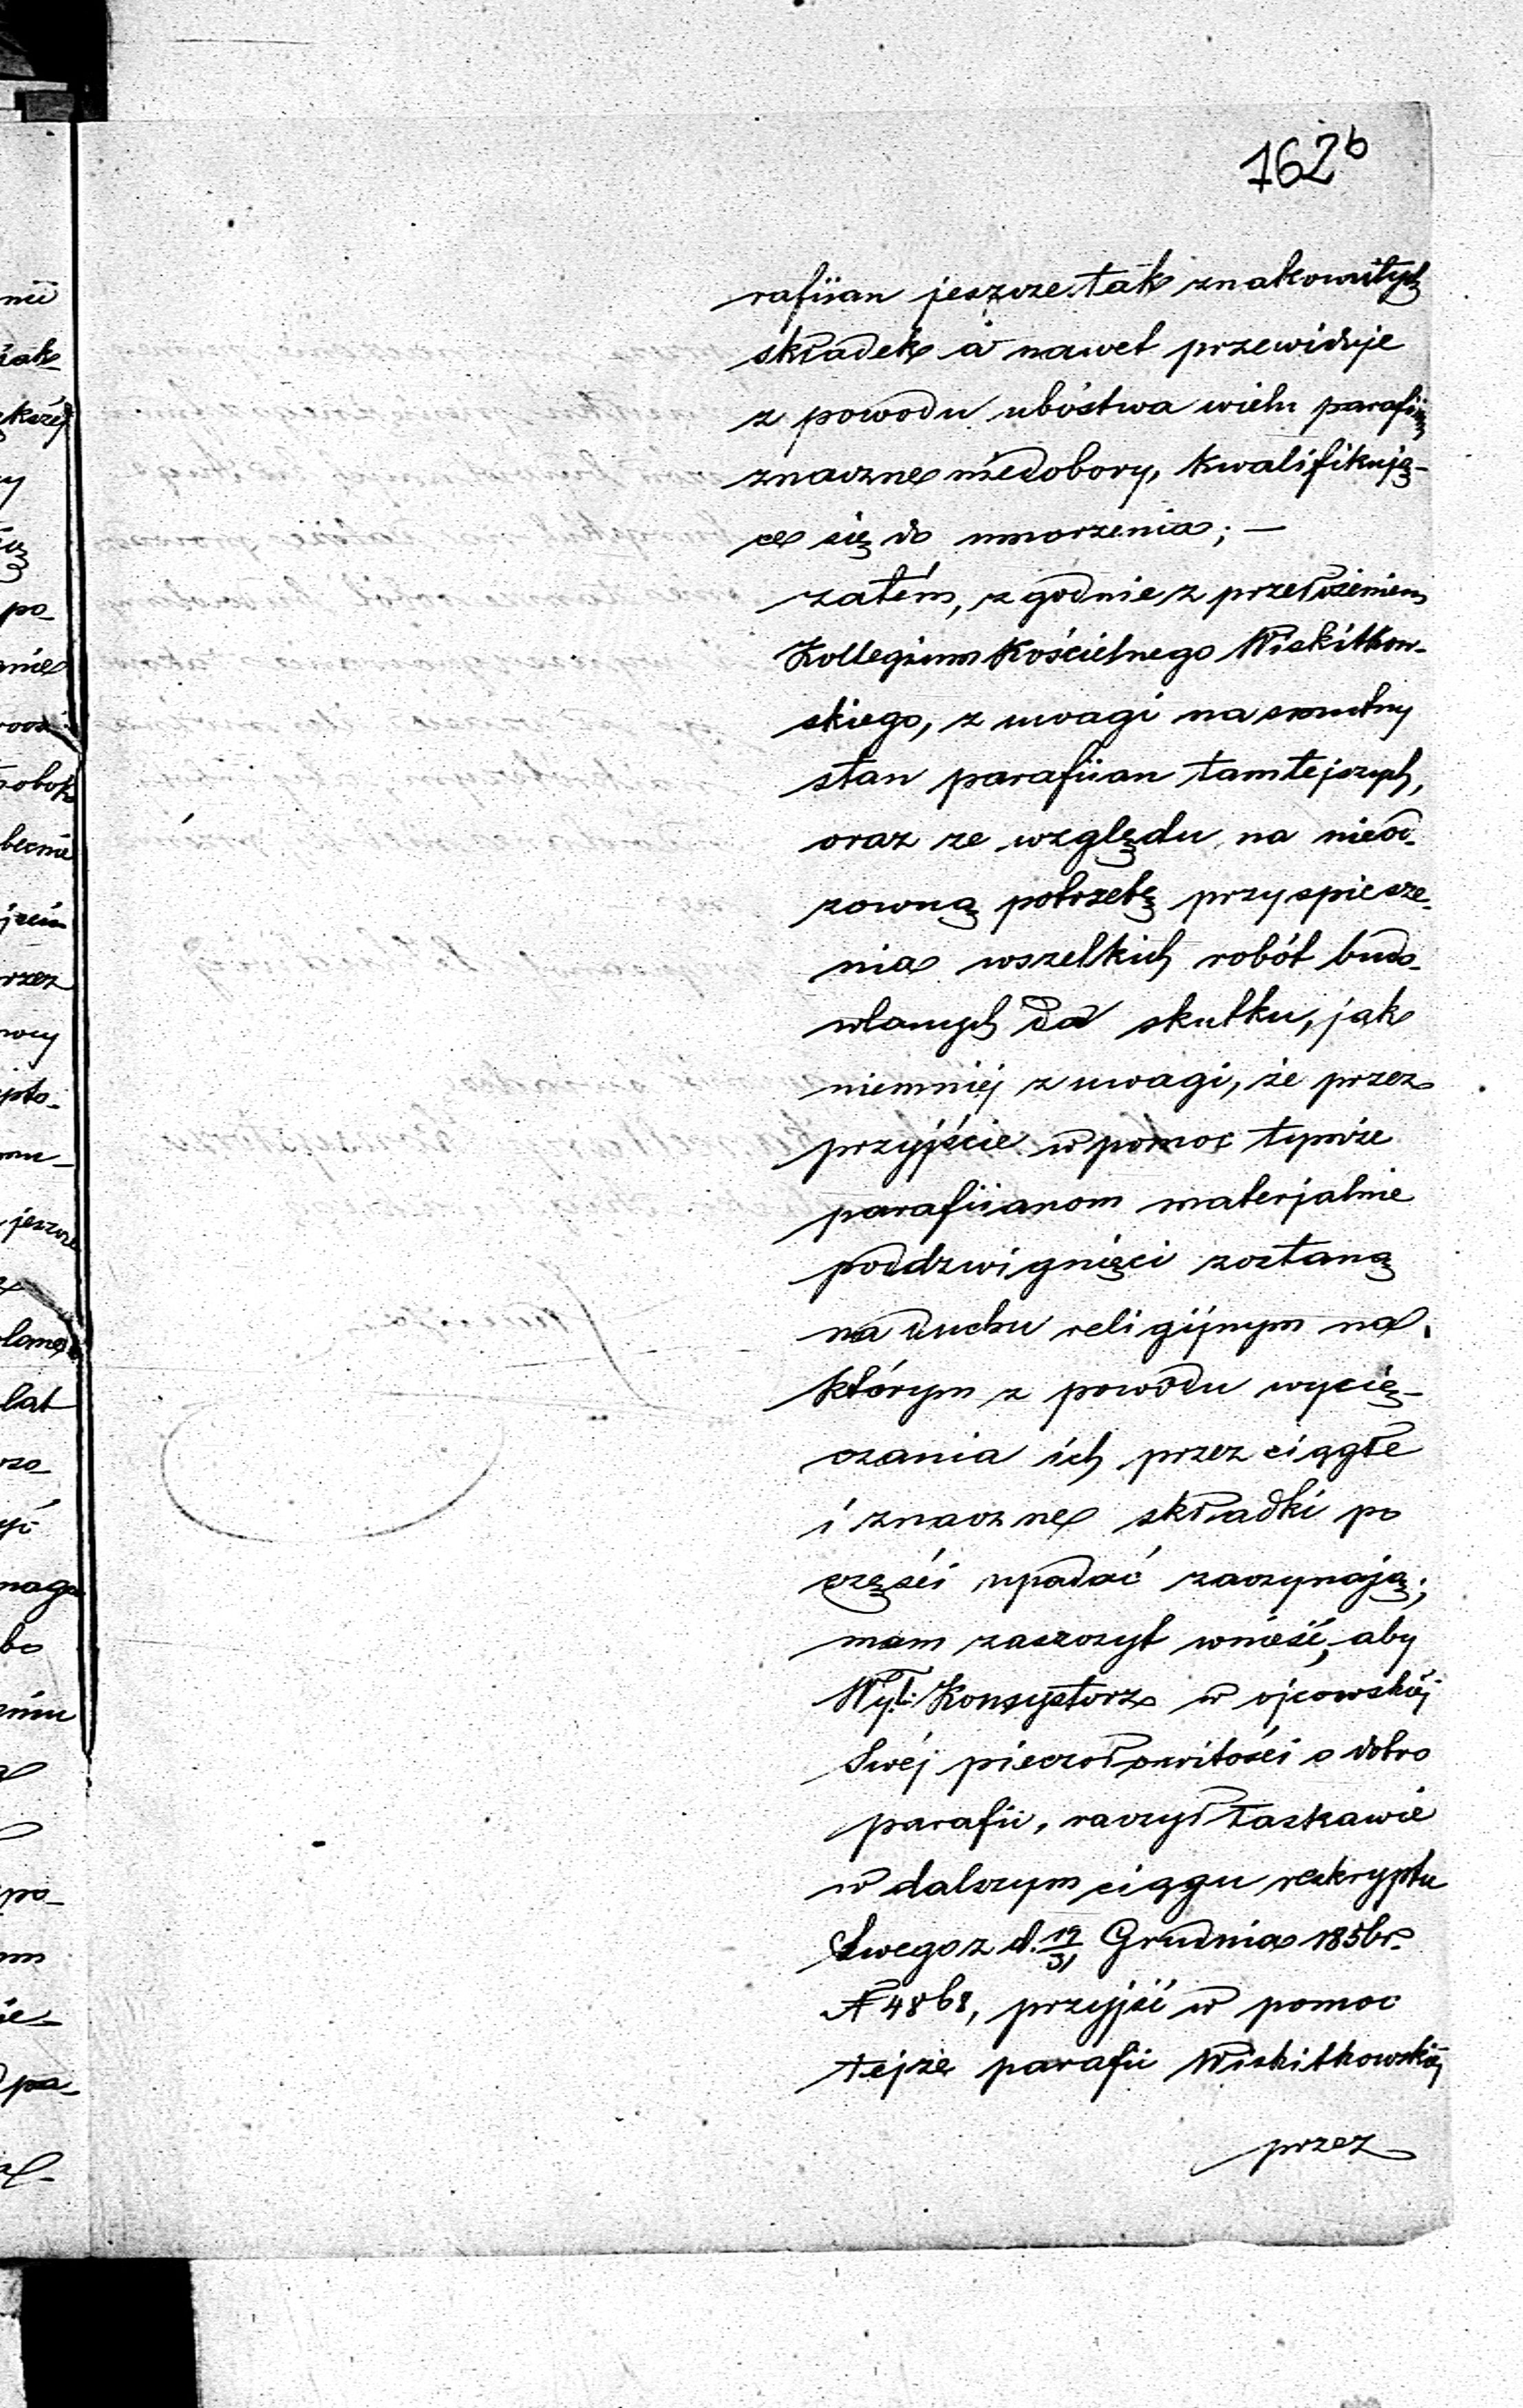 162b
rafiian jeszcze tak znakomitych
składek a nawet przewiduje
z powodu ubóstwa wielu parafiian
znaczne niedobory, kwalifikują-
ce się do umorzenia; —
zatém, zgodnie z przełożeniem
Kollegium Kościelnego Wiskitkow-
skiego, z uwagi na smutny
stan parafiian tamtejszych,
oraz ze względu na nieod-
zowną potrzebę przyspiesze-
nia wszelkich robót budo-
wlanych do skutku, jak
niemniéj z uwagi, że przez
przyjście w pomoc tymże
parafiianom materjalnie
poddzwignięci zostaną
na duchu religijnym na
którym z powodu wycię-
czania ich przez ciągłe
i znaczne składki po
części upadać zaczynają;
mam zaszczyt wnieść, aby
Wyż: Konsystorz w ojcowskiéj
Swéj pieczołowitości o dobro
parafii, raczył łaskawie
w dalszym ciągu reskryptu
Swego z d. 19/31 Grudnia 1856 r.
N 4868, przyjść w pomoc
tejże parafii Wiskitkowskiéj
przez